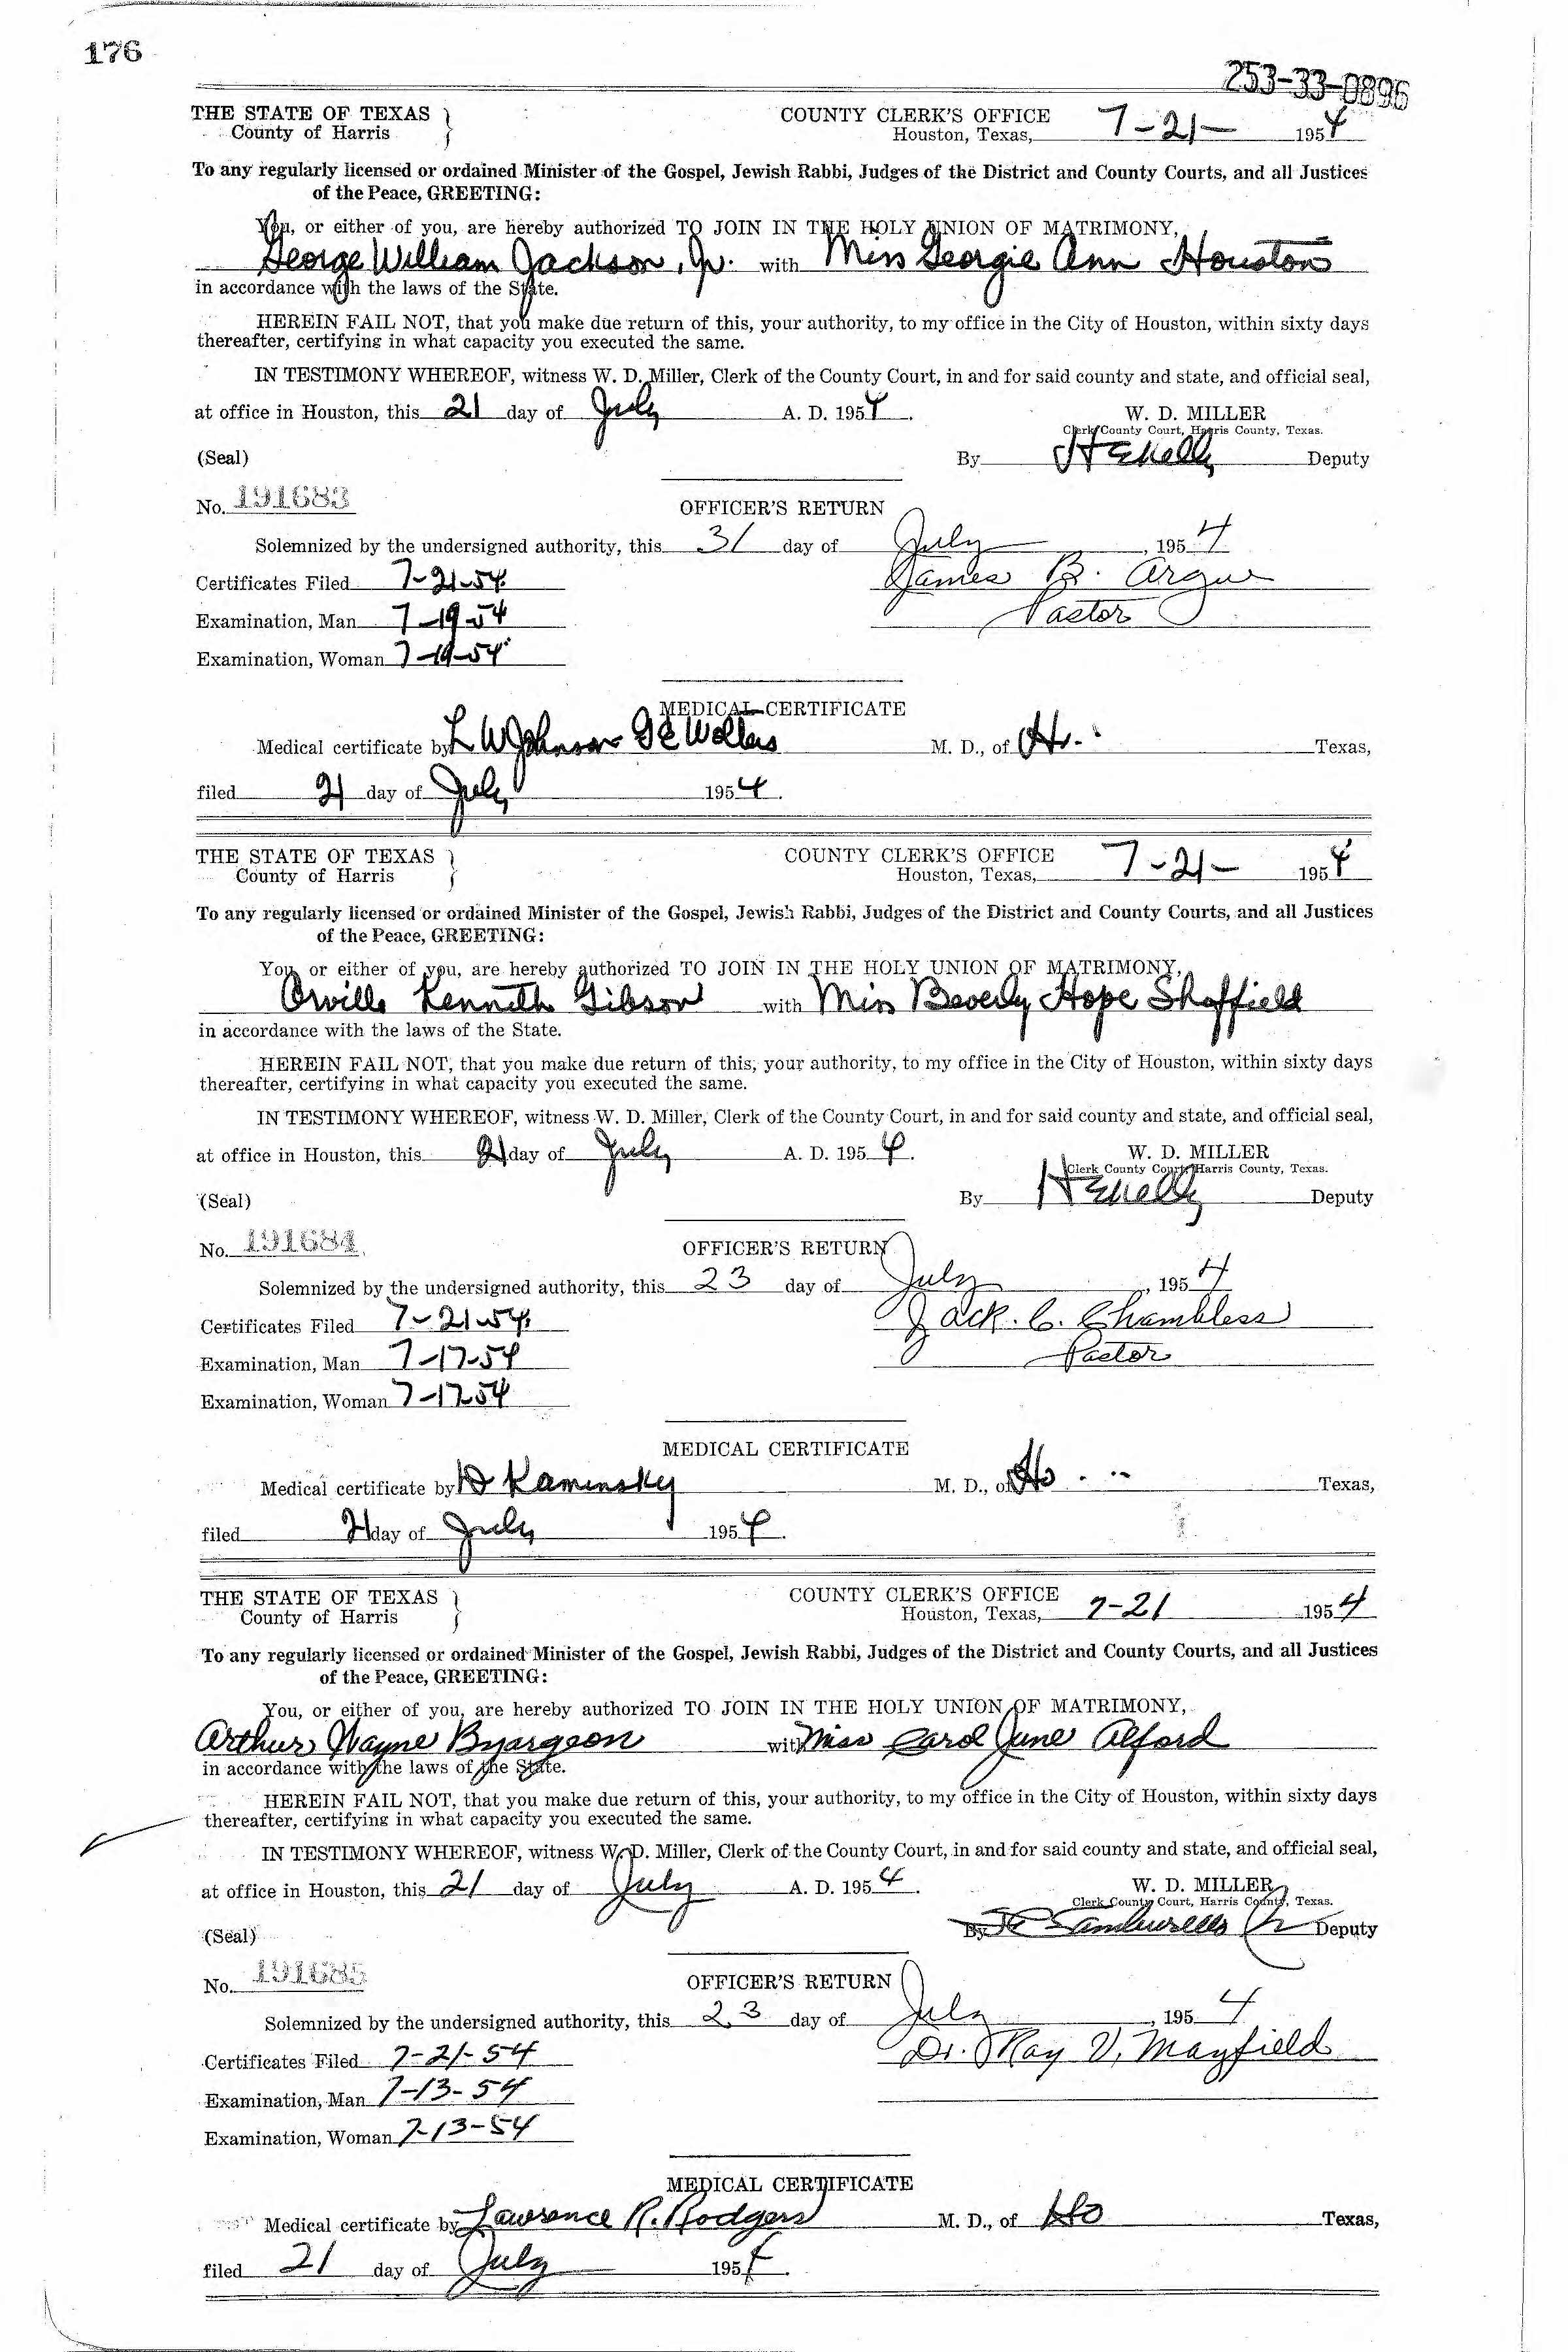 176
253-33-0896
THE STATE OF TEXAS } COUNTY CLERK'S OFFICE 7-21- 1954
County of Harris Houston, Texas,
To any regularly licensed or ordained Minister of the Gospel, Jewish Rabbi, Judges of the District and County Courts, and all Justices
of the Peace, GREETING:
You, or either of you, are hereby authorized TO JOIN IN THE HOLY UNION OF MATRIMONY,
George William Jackson, Jr. with Miss Georgie Ann Houston
in accordance with the laws of the State.
HEREIN FAIL NOT, that you make due return of this, your authority, to my office in the City of Houston, within sixty days
thereafter, certifying in what capacity you executed the same.
IN TESTIMONY WHEREOF, witness W. D. Miller, Clerk of the County Court, in and for said county and state, and official seal,
at office in Houston, this 21 day of July A. D. 1954. W. D. MILLER
Clerk County Court, Harris County, Texas.
(Seal) By Deputy
No. 191683 OFFICER'S RETURN
Solemnized by the undersigned authority, this 31 day of July, 1954
Certificates Filed 7-21-54 James B. Argue
Examination, Man 7-19-54 Pastor
Examination, Woman 7-19-54
MEDICAL CERTIFICATE
Medical certificate by L W Johnson G E Wolters M. D., of Ho. Texas,
filed 21 day of July 1954.
THE STATE OF TEXAS } COUNTY CLERK'S OFFICE 7-21- 1954
County of Harris Houston, Texas,
To any regularly licensed or ordained Minister of the Gospel, Jewish Rabbi, Judges of the District and County Courts, and all Justices
of the Peace, GREETING:
You, or either of you, are hereby authorized TO JOIN IN THE HOLY UNION OF MATRIMONY,
Orville Kenneth Gibson with Miss Beverly Hope Shoffield
in accordance with the laws of the State.
HEREIN FAIL NOT, that you make due return of this, your authority, to my office in the City of Houston, within sixty days
thereafter, certifying in what capacity you executed the same.
IN TESTIMONY WHEREOF, witness W. D. Miller, Clerk of the County Court, in and for said county and state, and official seal,
at office in Houston, this 21 day of July A. D. 1954. W. D. MILLER
Clerk County Court, Harris County, Texas.
(Seal) By Deputy
No. 191684 OFFICER'S RETURN
Solemnized by the undersigned authority, this 23 day of July, 1954
Certificates Filed 7-21-54 Jack. C. Chambless
Examination, Man 7-17-54 Pastor
Examination, Woman 7-17-54
MEDICAL CERTIFICATE
Medical certificate by D Kaminsky M. D., of Ho Texas,
filed 21 day of July 1954.
THE STATE OF TEXAS } COUNTY CLERK'S OFFICE 7-21 1954
County of Harris Houston, Texas,
To any regularly licensed or ordained Minister of the Gospel, Jewish Rabbi, Judges of the District and County Courts, and all Justices
of the Peace, GREETING:
You, or either of you, are hereby authorized TO JOIN IN THE HOLY UNION OF MATRIMONY,
Arthur Wayne Byargeon with Miss Carol June Alford
in accordance with the laws of the State.
HEREIN FAIL NOT, that you make due return of this, your authority, to my office in the City of Houston, within sixty days
thereafter, certifying in what capacity you executed the same.
IN TESTIMONY WHEREOF, witness W. D. Miller, Clerk of the County Court, in and for said county and state, and official seal,
at office in Houston, this 21 day of July A. D. 1954. W. D. MILLER
Clerk County Court, Harris County, Texas.
(Seal) By Deputy
No. 191685 OFFICER'S RETURN
Solemnized by the undersigned authority, this 23 day of July, 1954
Certificates Filed 7-21-54 Dr. Ray V. Mayfield
Examination, Man 7-13-54
Examination, Woman 7-13-54
MEDICAL CERTIFICATE
Medical certificate by Lawrence R. Rodgers M. D., of Ho Texas,
filed 21 day of July 1954.